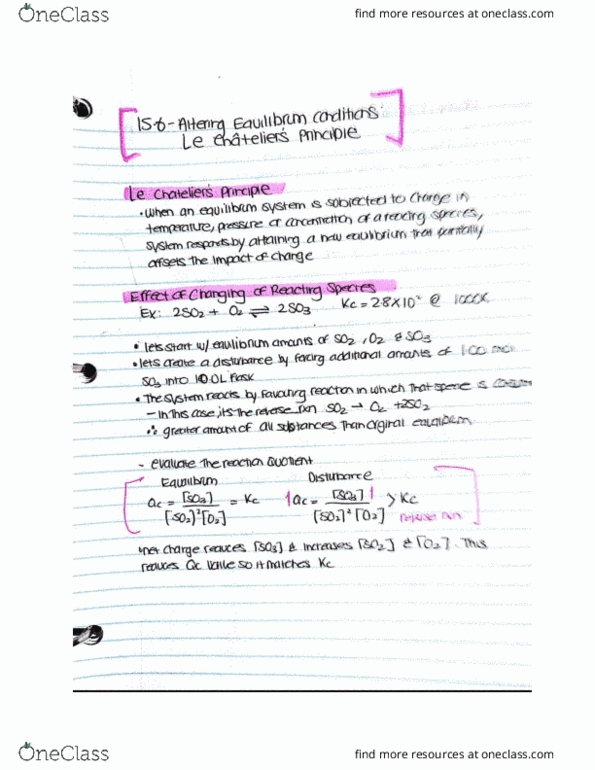 OneClass
find more resources at oneclass.com
15.6 - Altering Equilibrium conditions
Le Châtelier's Principle
Le Chatelier's Principle
• When an equilibrium system is subjected to change in
temperature, pressure or concentration of a reacting species,
system responds by attaining a new equilibrium that partially
offsets the impact of change
Effect of Changing of Reacting Species
Ex: 2SO₂ + O₂ ⇌ 2SO₃ Kc = 2.8 x 10² @ 1000K
• lets start w/ equilibrium amounts of SO₂, O₂ & SO₃
• lets create a disturbance by facing additional amounts of 1.00
SO₃ into 10.0L flask
• The system reacts by favouring reaction in which that specie is
- In this case, its the reverse rxn SO₂ → O₂ + 2SO₂
∴ greater amount of all substances than orginal equilibrium
- evaluate the reaction quotient
Equilibrium Disturbance
Qc = [SO₃] / [SO₂]²[O₂] = Kc Qc = [SO₃] / [SO₂]²[O₂] > Kc
reverse rxn
net change reduces [SO₃] & increases [SO₂] & [O₂]. This
reduces Qc value so it matches Kc
OneClass
find more resources at oneclass.com